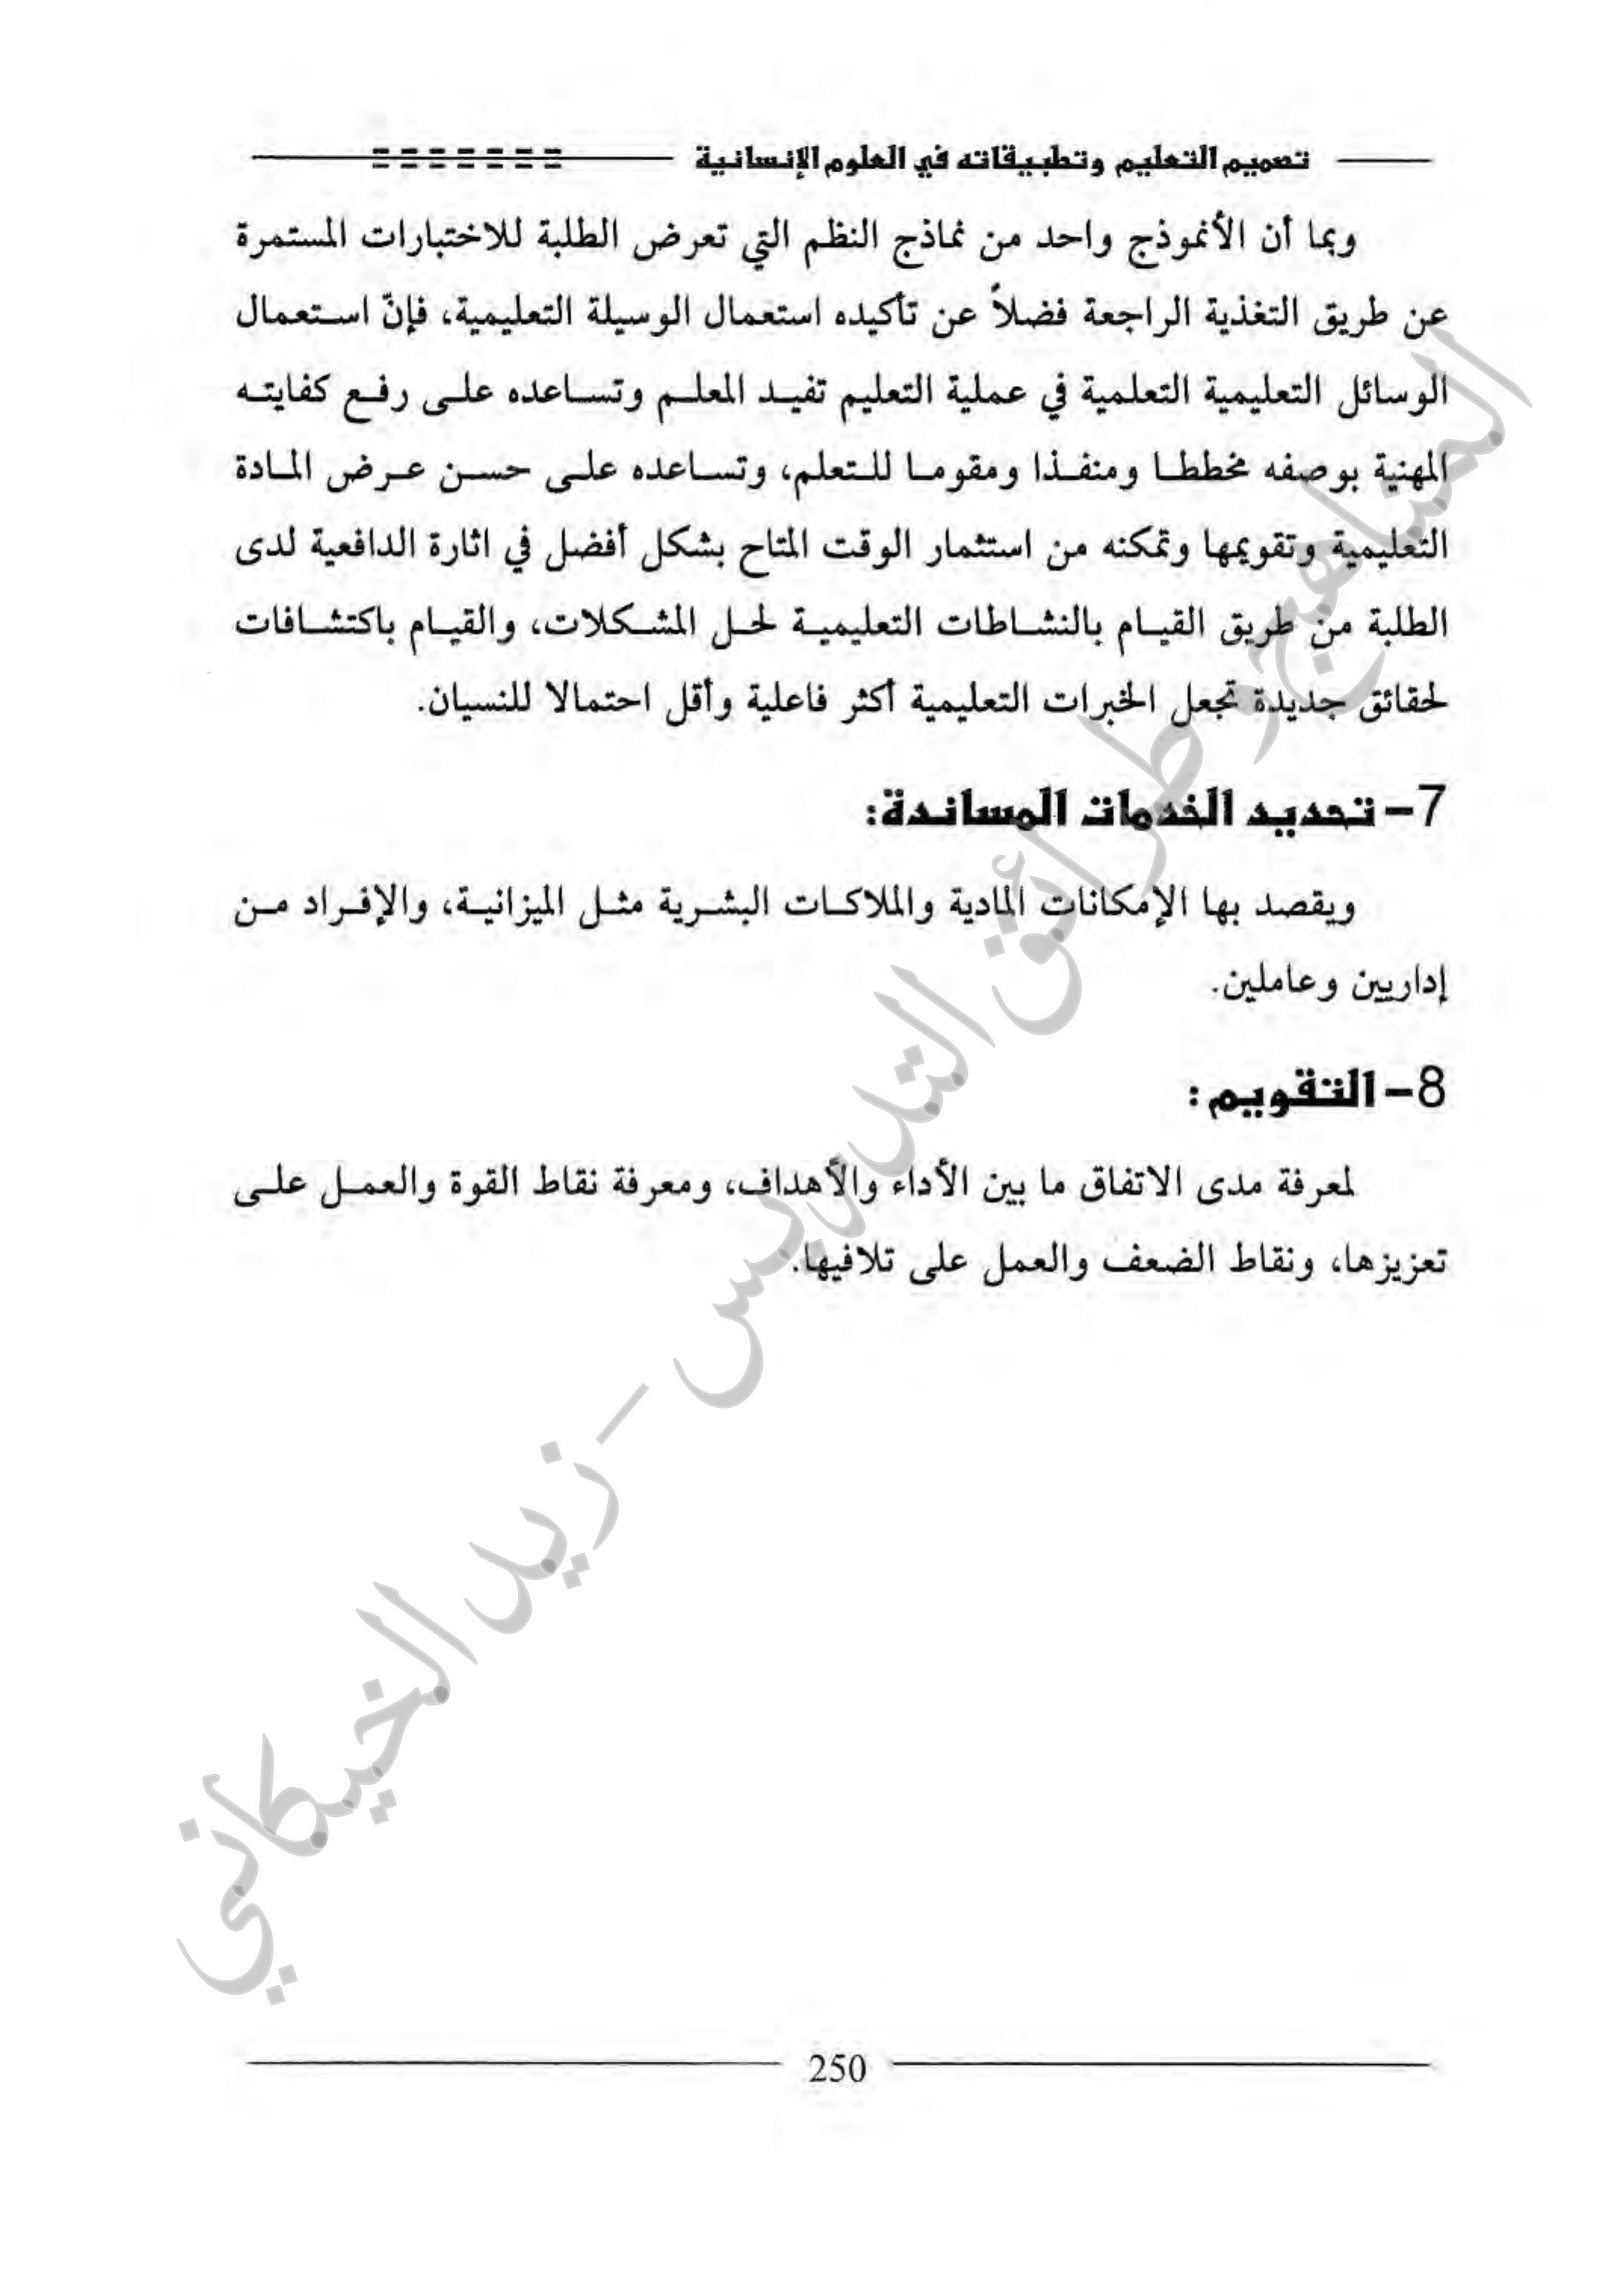 تصميم التعليم وتطبيقاته في العلوم الإنسانية
وبما أن الأنموذج واحد من نماذج النظم التي تعرض الطلبة للاختبارات المستمرة
عن طريق التغذية الراجعة فضلاً عن تأكيده استعمال الوسيلة التعليمية، فإنّ استعمال
الوسائل التعليمية التعلمية في عملية التعليم تفيد المعلم وتساعده على رفع كفايته
المهنية بوصفه مخططا ومنفذا ومقوما للتعلم، وتساعده على حسن عرض المادة
التعليمية وتقويمها وتمكنه من استثمار الوقت المتاح بشكل أفضل في اثارة الدافعية لدى
الطلبة من طريق القيام بالنشاطات التعليمية لحل المشكلات، والقيام باكتشافات
لحقائق جديدة تجعل الخبرات التعليمية أكثر فاعلية وأقل احتمالا للنسيان.
7- تحديد الخدمات المساندة:
ويقصد بها الإمكانات المادية والملاكات البشرية مثل الميزانية، والإفراد من
إداريين وعاملين.
8- التقويم:
لمعرفة مدى الاتفاق ما بين الأداء والأهداف، ومعرفة نقاط القوة والعمل على
تعزيزها، ونقاط الضعف والعمل على تلافيها.
المناهج وطرائق التدريس - زيد الخيكاني
250